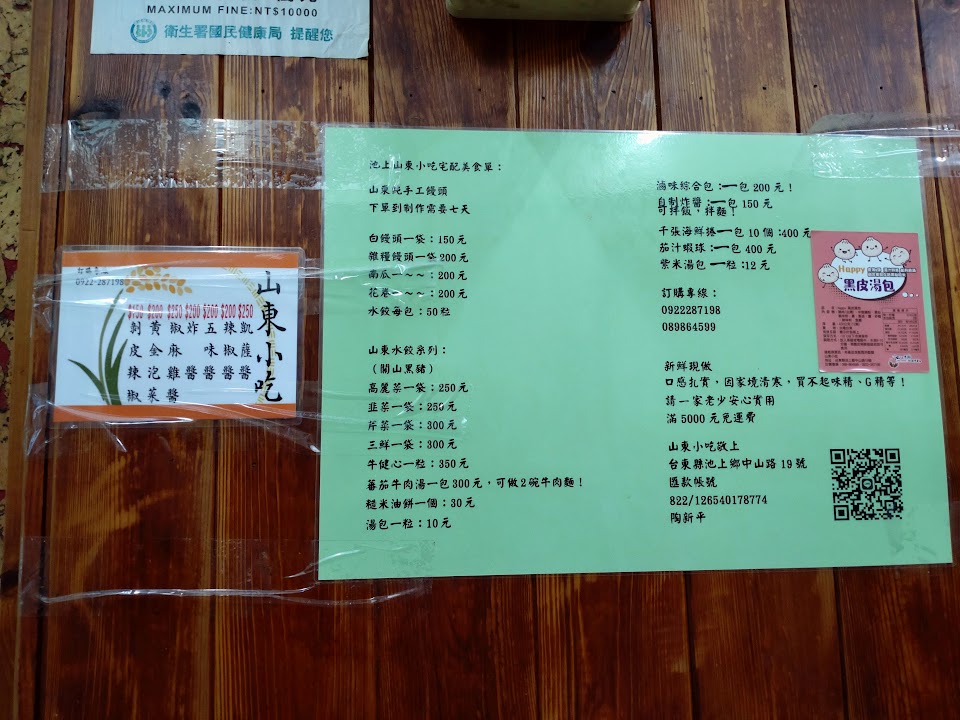 MAXIMUM FINE:NT$10000
衛生署國民健康局 提醒您
池上山東小吃宅配美食單：
山東純手工饅頭
下單到制作需要七天
白饅頭一袋：150元
雜糧饅頭一袋 200元
南瓜一～～：200元
花卷一～～：200元
水餃每包：50粒
山東水餃系列：
（關山黑豬）
高麗菜一袋：250元
韭菜一袋：250元
芹菜一袋：300元
三鮮一袋：300元
牛健心一粒：350元
蕃茄牛肉湯一包300元，可做2碗牛肉麵！
糙米油餅一個：30元
湯包一粒：10元
滷味綜合包：一包 200 元！
自制炸醬：一包 150元
可拌飯，拌麵！
千張海鮮捲一包 10個：400元
茄汁蝦球：一包 400元
紫米湯包一粒：12元
訂購專線：
0922287198
089864599
新鮮現做
口感扎實，因家境清寒，買不起味精、G精等！
請一家老少安心實用
滿 5000 元免運費
山東小吃敬上
台東縣池上鄉中山路 19 號
匯款帳號
822/126540178774
陶新平
訂購專線
0922-287198
山東小吃
$150 $200 $250 $200 $200 $200 $250
剝皮辣椒
黃金泡菜
椒麻雞醬
炸醬
五味醬
辣椒醬
凱薩醬
Happy
黑皮湯包